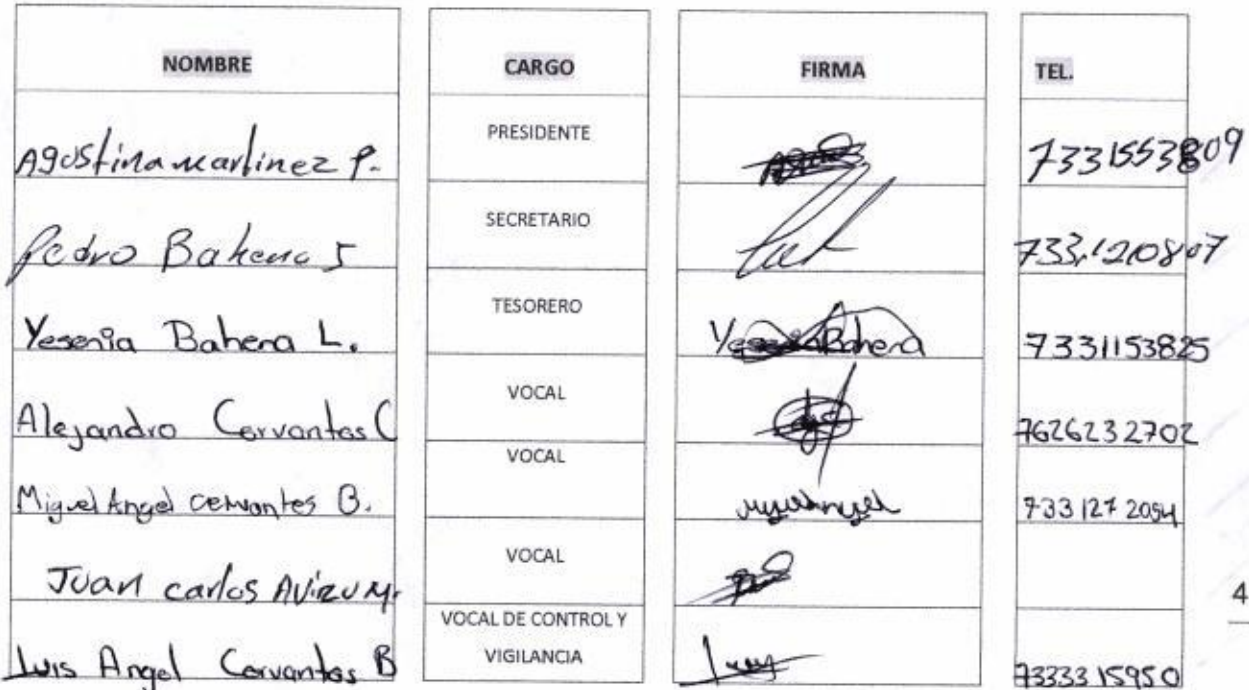 NOMBRE CARGO FIRMA TEL.
Agustina Martinez P. PRESIDENTE 7331553809
Pedro Bahena S SECRETARIO 7331210807
Yesenia Bahena L. TESORERO Yesenia Bahena 7331153825
Alejandro Cervantes C VOCAL 7626232702
Miguel Angel Cervantes B. VOCAL Miguel Angel 733 127 2054
Juan carlos AVizu M. VOCAL
Luis Angel Cervantes B VOCAL DE CONTROL Y
VIGILANCIA Luis 7333315950
4